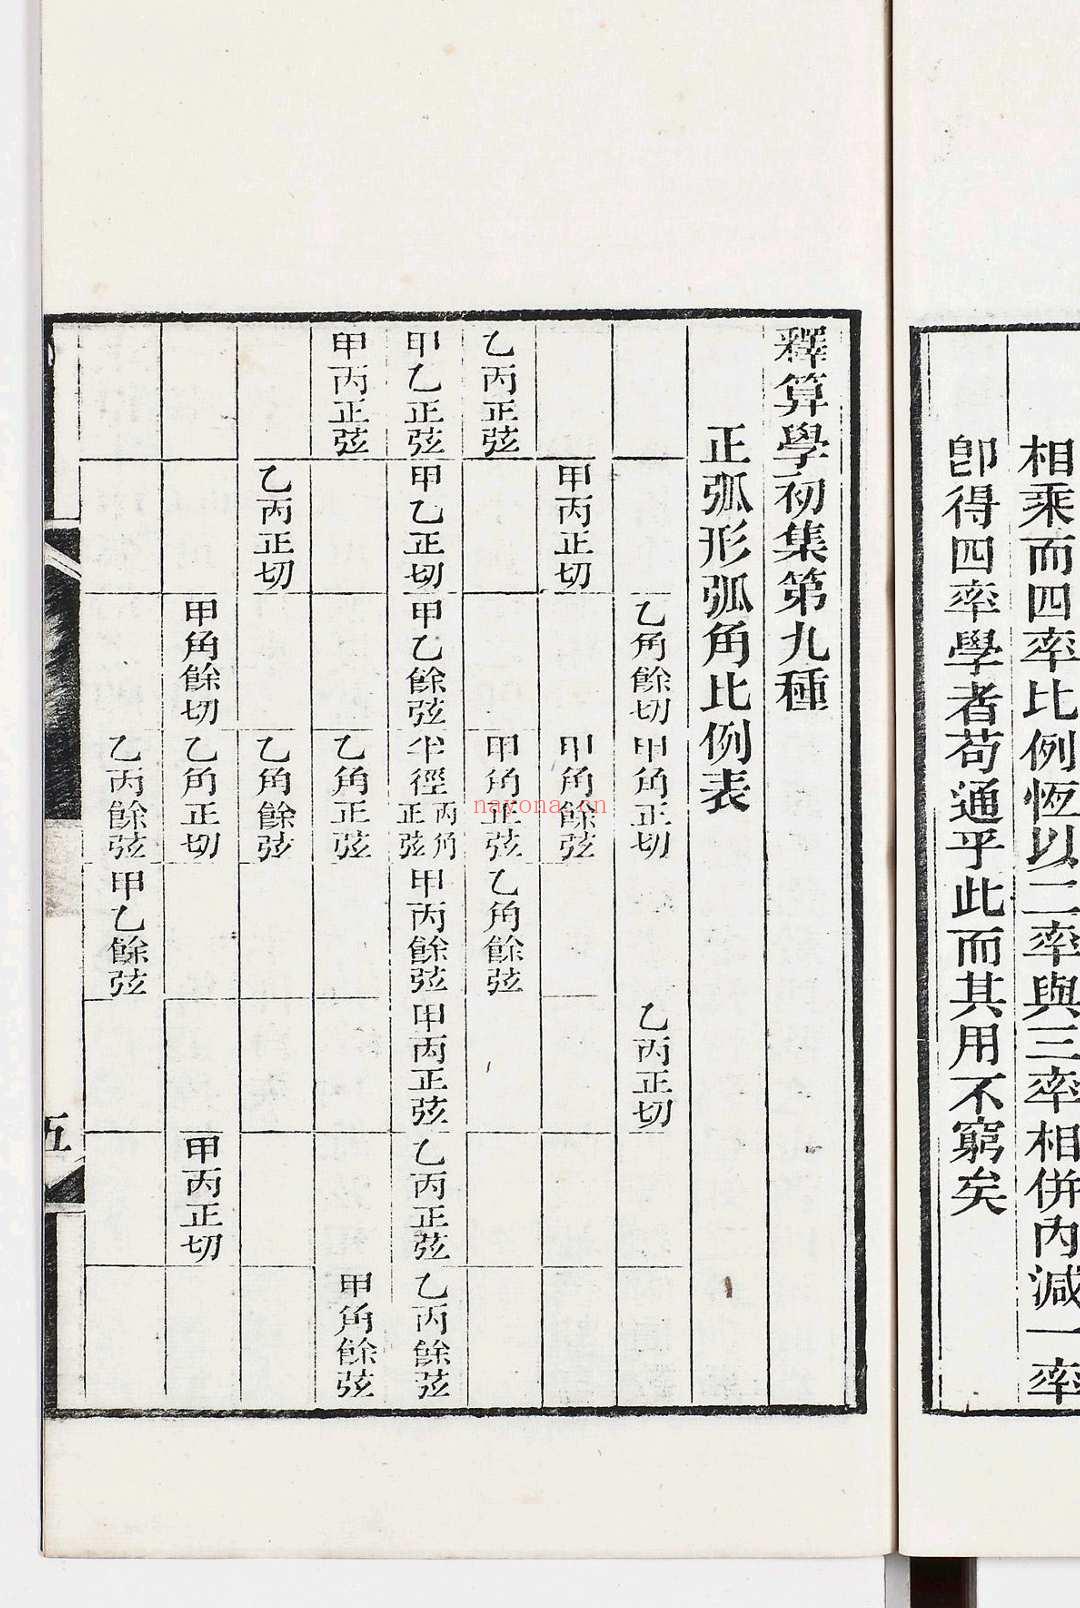 相乘而四率比例恆以二率與三率相併內減一率
卽得四率學者苟通乎此而其用不窮矣
釋算學初集第九種
正弧形弧角比例表
乙角餘切 甲角正切 乙丙正切
甲丙正切 甲角餘弦
乙丙正弦 甲角正弦 乙角餘弦
甲乙正弦 甲乙正切 甲乙餘弦 半徑丙角正弦 甲丙餘弦 甲丙正弦 乙丙正弦 乙丙餘弦
甲丙正弦 乙角正弦 甲角餘弦
乙丙正切 乙角餘弦
甲角餘切 乙角正切 甲丙正切
乙丙餘弦 甲乙餘弦
五
nayona.cn